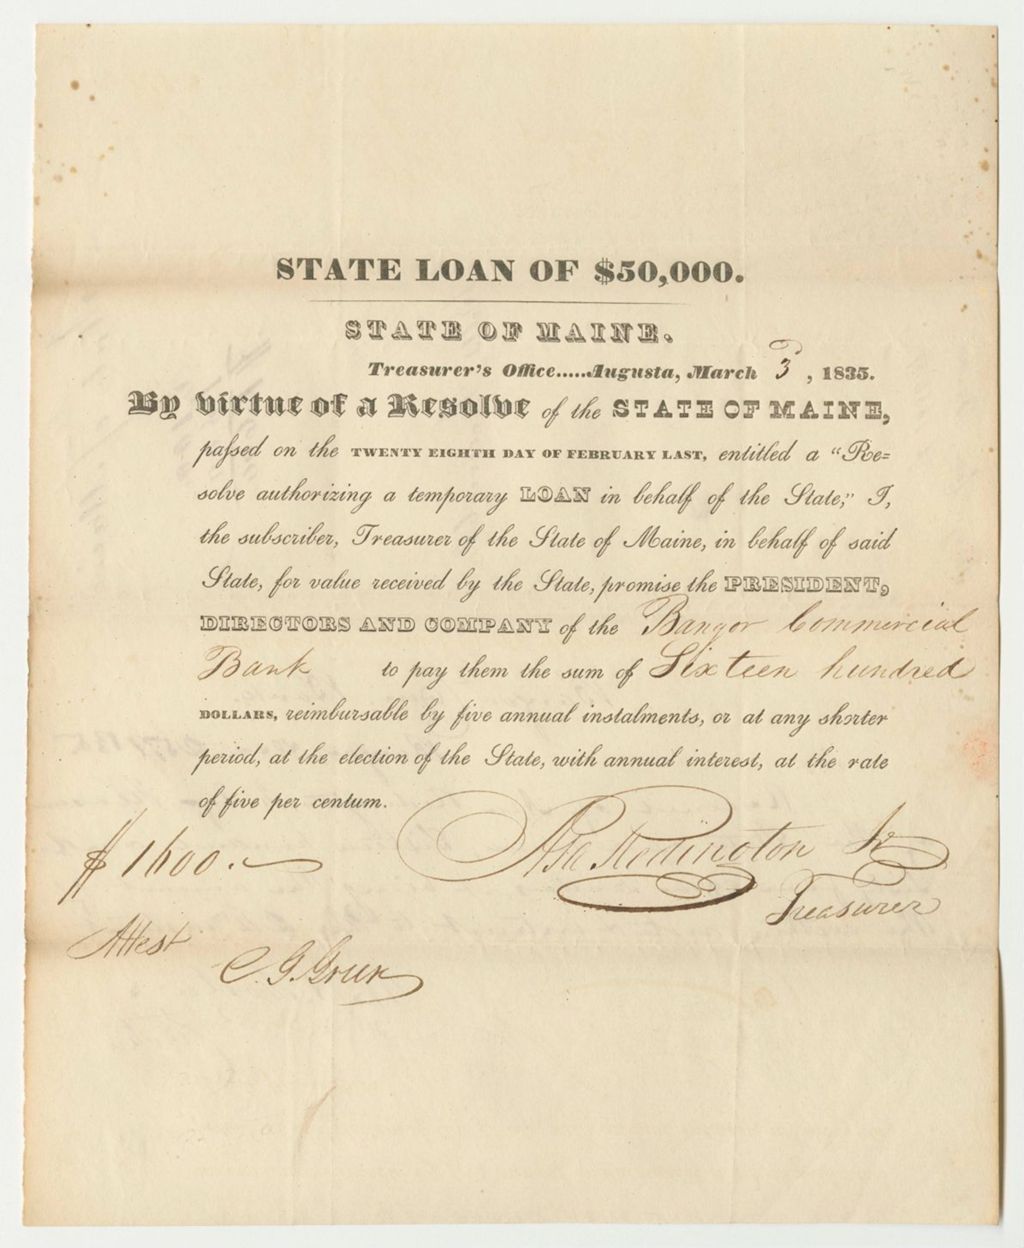 STATE LOAN OF $50,000.
STATE OF MAINE.
Treasurer's Office.....Augusta, March 3, 1835.
By virtue of a Resolve of the STATE OF MAINE,
passed on the TWENTY EIGHTH DAY OF FEBRUARY LAST, entitled a "Re=
solve authorizing a temporary LOAN in behalf of the State," I,
the subscriber, Treasurer of the State of Maine, in behalf of said
State, for value received by the State, promise the PRESIDENT,
DIRECTORS AND COMPANY of the Bangor Commercial
Bank to pay them the sum of Sixteen hundred
DOLLARS, reimbursable by five annual instalments, or at any shorter
period, at the election of the State, with annual interest, at the rate
of five per centum.
$1600.
Asa Redington Jr
Treasurer
Attest
C. G.